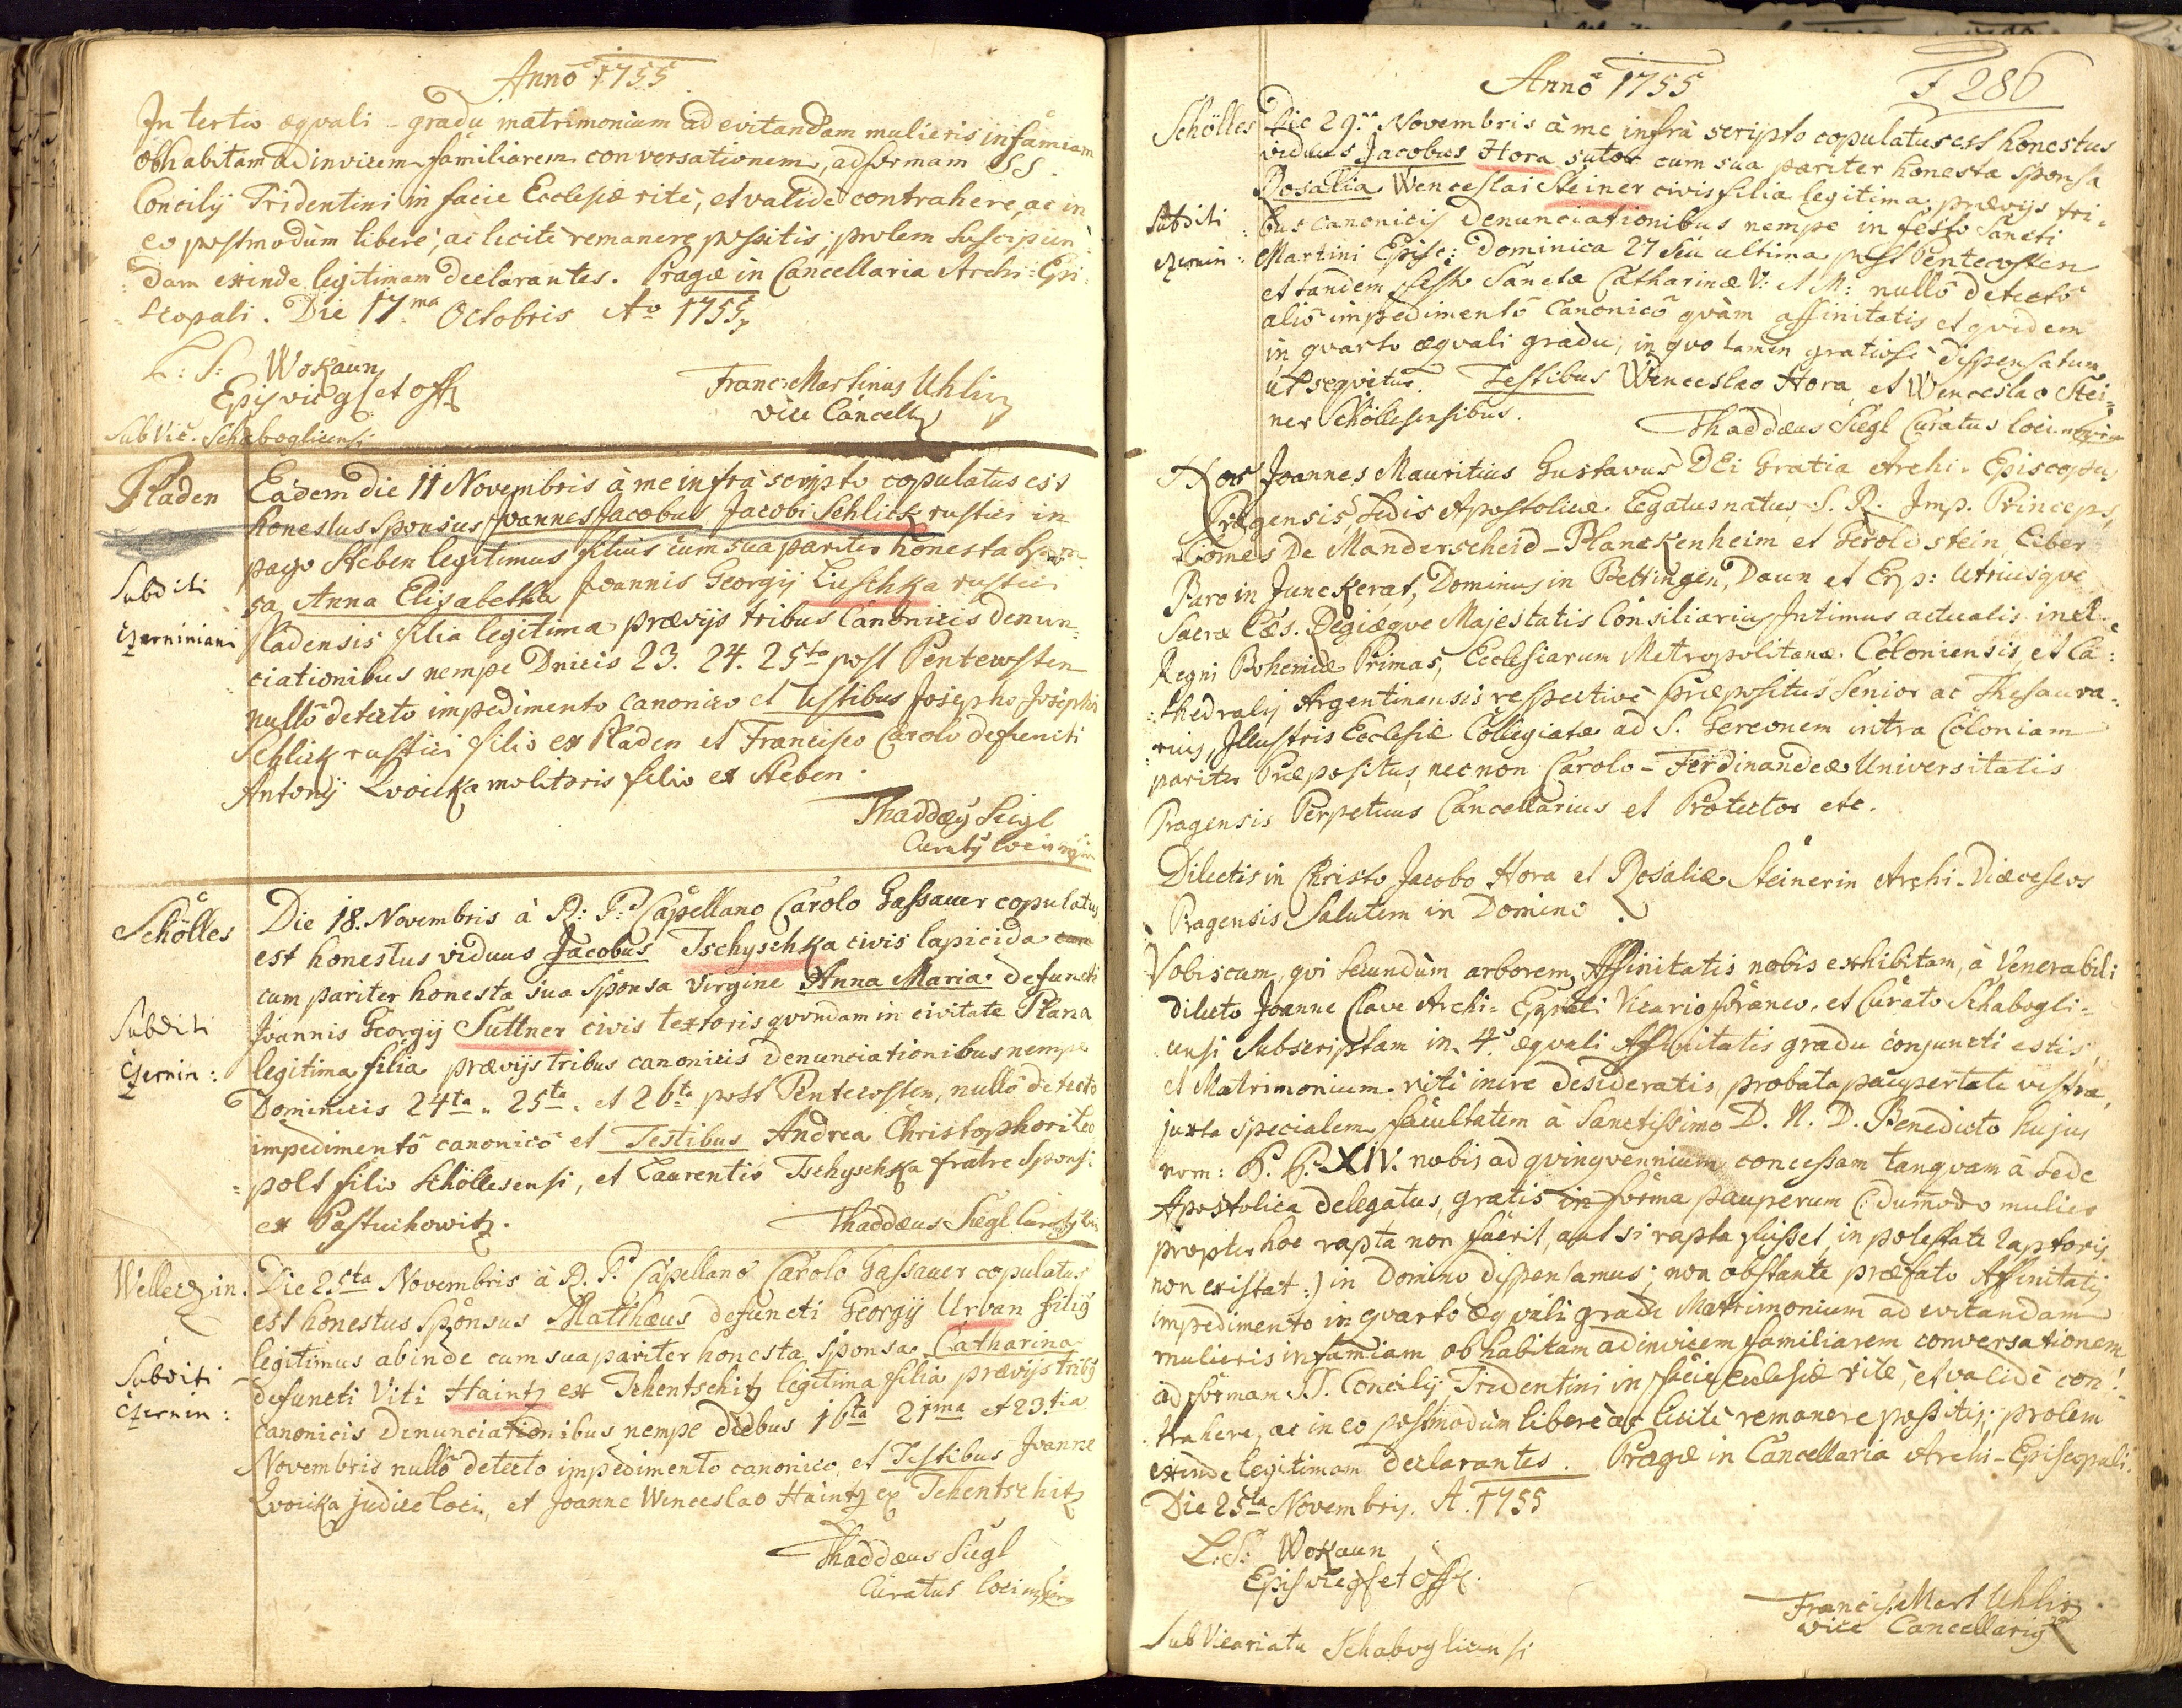 Anno 1755
In tertio aeqvali gradu matrimonium ad evitandam mulieris infamiam
ob habitam ad invicem familiarem conversationem, ad formam SS.
Concilij Tridentini in facie Ecclesiae rite, et valide contrahere, ac in
eo postmodum libere, ac licite remanere possitis, prolem suscipien
dam exinde legitimam declarantes. Pragae in Cancellaria Archi-Epi-
scopali. Die 17ma Octobris Ao 1755
L: S: Wokaun
Franc: Martinus Uhlirz
vice Cancell
Sub Vic. Schaboglicensi
Pladen
Eadem die 11 Novembris à me infra scripto copulatus est
honestus Sponsus Joannes Jacobus Jacobi Schlick rustici in
pago Steben legitimus filius cum sua pariter honesta Spon
Subditi
sa Anna Elisabetha Joannis Georgij Lieschka rustici
Czerniniani
Pladensis filia legitima praevijs tribus Canonicis denun:
ciationibus nempe Dnicis 23. 24. 25ta post Pentecosten
nullo detecto impedimento canonico et Testibus Josepho Josephi
Schlick rustici filio ex Pladen et Francisco Carolo defuncti
Antonij Zvoicka molitoris filio ex Steben.
Thaddaeus Siegl
Curatus loci
Schölles
Die 18. Novembris à R: P: Capellano Carolo Gassauer copulatus
est honestus viduus Jacobus Tschyschka civis lapicida cum
cum pariter honesta sua Sponsa Virgine Anna Maria defuncti
Subditi
Joannis Georgij Suttner civis textoris qvondam in civitate Plana
Czernin:
legitima filia praevijs tribus canonicis denunciationibus nempe
Dominicis 24ta. 25ta. et 26ta post Pentecosten, nullo detecto
impedimento canonico et Testibus Andrea Christophori Leo
polt filio Schöllesensi, et Laurentio Tschyschka fratre Sponsi
ex Pastuchowitz.
Thaddaeus Siegl Curatus loci
Welletzin.
Die 25ta Novembris à R. P. Capellano Carolo Gassauer copulatus
est honestus Sponsus Matthaeus defuncti Georgij Urvan filius
legitimus abinde cum sua pariter honesta Sponsa Catharina
Subditi
defuncti Viti Haintz ex Tchentschitz legitima filia praevijs tribus
Czernin:
canonicis denunciationibus nempe diebus 16ta 21ma et 23tia
Novembris nullo detecto impedimento canonico, et Testibus Joanne
Zvoicka judice loci, et Joanne Wenceslao Haintz ex Tchentschitz
Thaddaeus Siegl
Curatus loci
Anno 1755
F 286
Schölles
Die 29na Novembris à me infra scripto copulatus est honestus
viduus Jacobus Hora sutor cum sua pariter honesta Sponsa
Rosalia Wenceslai Steiner civis filia legitima praevijs tri:
Subditi
bus canonicis denunciationibus nempe in festo Sancti
Czernin:
Martini Episc: Dominica 27 seu ultima post Pentecosten
et tandem festo Sanctae Catharinae V: et M: nullo detecto
alio impedimento Canonico qvàm affinitatis et qvidem
in qvarto aeqvali gradu, in qvo tamen gratiose dispensatum
ut seqvitur. Testibus Wenceslao Hora, et Wenceslao Stei:
ner Schöllesensibus.
Thaddaeus Siegl Curatus loci
Nos Joannes Mauritius Gustavus DEi Gratia Archi-Episcopus
Pragensis, Sedis Apostolicae Legatus natus, S. R. Imp. Princeps,
Comes De Manderscheid-Planckenheim et Geroldstein, Liber
Baro in Junckerat, Dominus in Bettingen, Daun et Erp: Utriusqve
Sacrae Caes. Regiaeqve Majestatis Consiliarius Intimus actualis incl.
Regni Bohemiae Primas, Ecclesiarum Metropolitanae Coloniensis, et Ca:
thedralis Argentinensis respective Praepositus Senior ac Thesaura:
rius, Illustris Ecclesiae Collegiatae ad S. Gereonem intra Coloniam
pariter Praepositus, necnon Carolo-Ferdinandeae Universitatis
Pragensis Perpetuus Cancellarius et Protector etc.
Dilectis in Christo Jacobo Hora et Rosaliae Steinerin Archi-Dioeceseos
Pragensis Salutem in Domino
Vobiscum, qvi secundùm arborem Affinitatis nobis exhibitam, à Venerabili
dilecto Joanne Clave Archi-Eppali Vicario foraneo, et Curato Schabogli:
censi subscriptam in 4to aeqvali Affinitatis gradu conjuncti estis,
et Matrimonium rite inire desideratis, probata paupertate vestra,
juxta specialem facultatem à Sanctissimo D. N. D. Benedicto hujus
nom: P. P. XIV. nobis ad qvinqvennium concessam tanqvam à Sede
Apostolica delegatus, gratis in forma pauperum (: dummodo mulier
propter hoc rapta non fuerit, aut si rapta fuisset, in potestate raptoris
non existat :) in Domino dispensamus; non obstante praefato Affinitatis
impedimento in qvarto aeqvali gradu Matrimonium ad evitandam
mulieris infamiam ob habitam ad invicem familiarem conversationem
ad formam S.S. Concilij Tridentini in facie Ecclesiae rite, et valide con:
trahere, ac in eo postmodùm libere ac licite remanere possitis, prolem
exinde legitimam declarantes. Pragae in Cancellaria Archi-Episcopali.
Die 25ta Novembris. A. 1755
L: S: Wokaun
Francis: Mart Uhlirz
vice Cancellarius
Sub Vicariatu Schaboglicensi